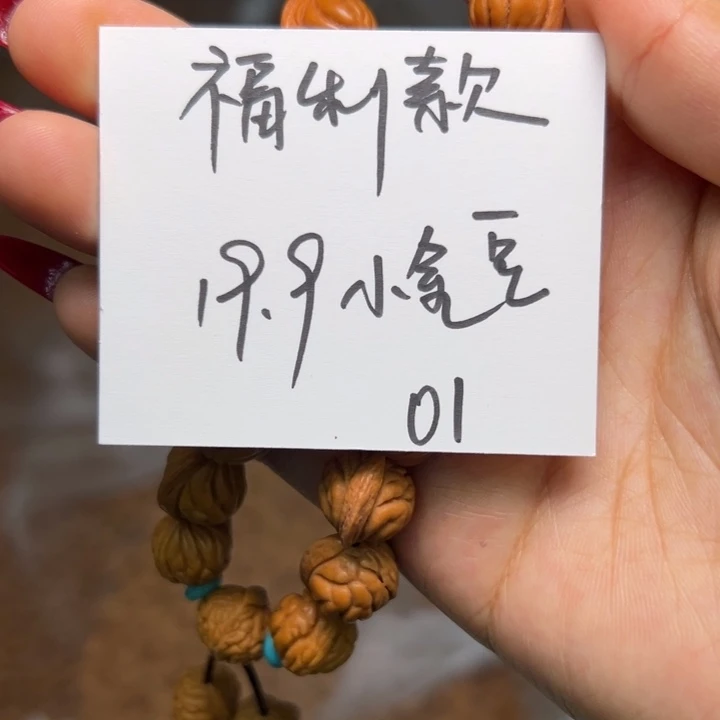 福利款
19.9小金豆
01